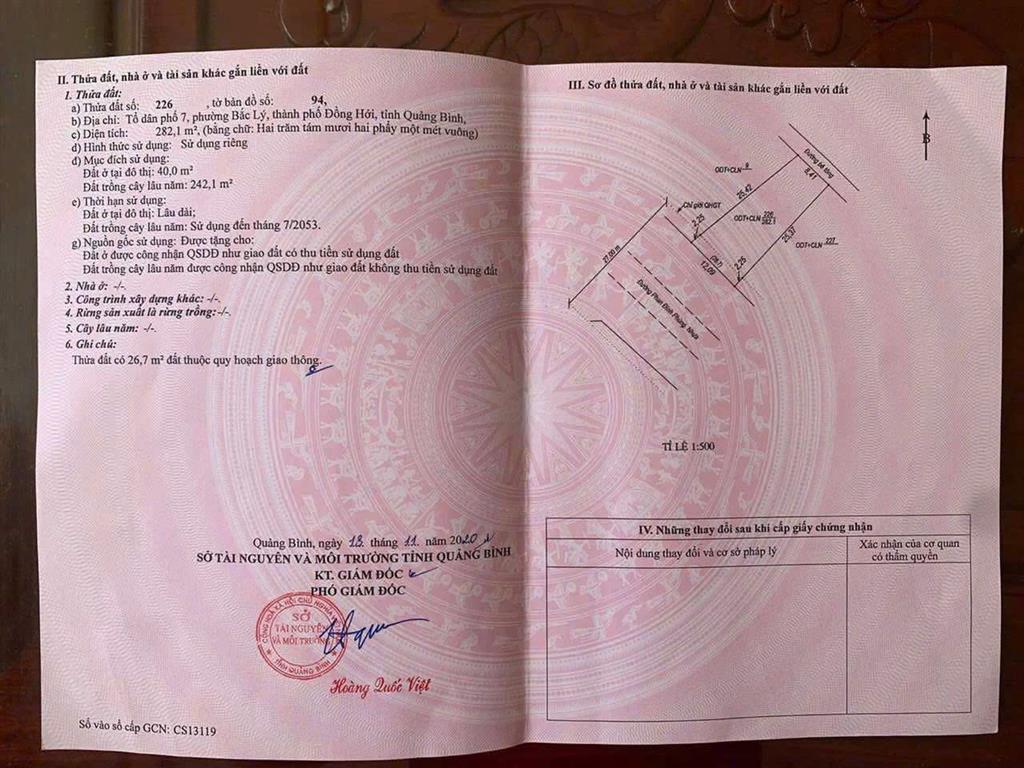 II. Thửa đất, nhà ở và tài sản khác gắn liền với đất
1. Thửa đất:
a) Thửa đất số: 226 , tờ bản đồ số: 94,
b) Địa chỉ: Tổ dân phố 7, phường Bắc Lý, thành phố Đồng Hới, tỉnh Quảng Bình,
c) Diện tích: 282,1 m², (bằng chữ: Hai trăm tám mươi hai phẩy một mét vuông)
d) Hình thức sử dụng: Sử dụng riêng
đ) Mục đích sử dụng:
Đất ở tại đô thị: 40,0 m²
Đất trồng cây lâu năm: 242,1 m²
e) Thời hạn sử dụng:
Đất ở tại đô thị: Lâu dài;
Đất trồng cây lâu năm: Sử dụng đến tháng 7/2053.
g) Nguồn gốc sử dụng: Được tặng cho:
Đất ở được công nhận QSDĐ như giao đất có thu tiền sử dụng đất
Đất trồng cây lâu năm được công nhận QSDĐ như giao đất không thu tiền sử dụng đất
2. Nhà ở: -/-.
3. Công trình xây dựng khác: -/-.
4. Rừng sản xuất là rừng trồng: -/-.
5. Cây lâu năm: -/-.
6. Ghi chú:
Thửa đất có 26,7 m² đất thuộc quy hoạch giao thông.
Quảng Bình, ngày 13 tháng 11 năm 2020
SỞ TÀI NGUYÊN VÀ MÔI TRƯỜNG TỈNH QUẢNG BÌNH
KT. GIÁM ĐỐC
PHÓ GIÁM ĐỐC
CỘNG HOÀ XÃ HỘI CHỦ NGHĨA
SỞ
TÀI NGUYÊN
VÀ MÔI TRƯỜNG
TỈNH QUẢNG BÌNH
Hoàng Quốc Việt
Số vào sổ cấp GCN: CS13119
III. Sơ đồ thửa đất, nhà ở và tài sản khác gắn liền với đất
B
Đường bê tông
8,41
ODT+CLN 9
25,42
Chỉ giới QHGT
ODT+CLN 226
282.1
2,25
25,37
ODT+CLN 227
27,00 m
(26,7)
12,09
2,25
Đường Phan Đình Phùng, Nhựa
TỈ LỆ 1:500
IV. Những thay đổi sau khi cấp giấy chứng nhận
Nội dung thay đổi và cơ sở pháp lý
Xác nhận của cơ quan
có thẩm quyền